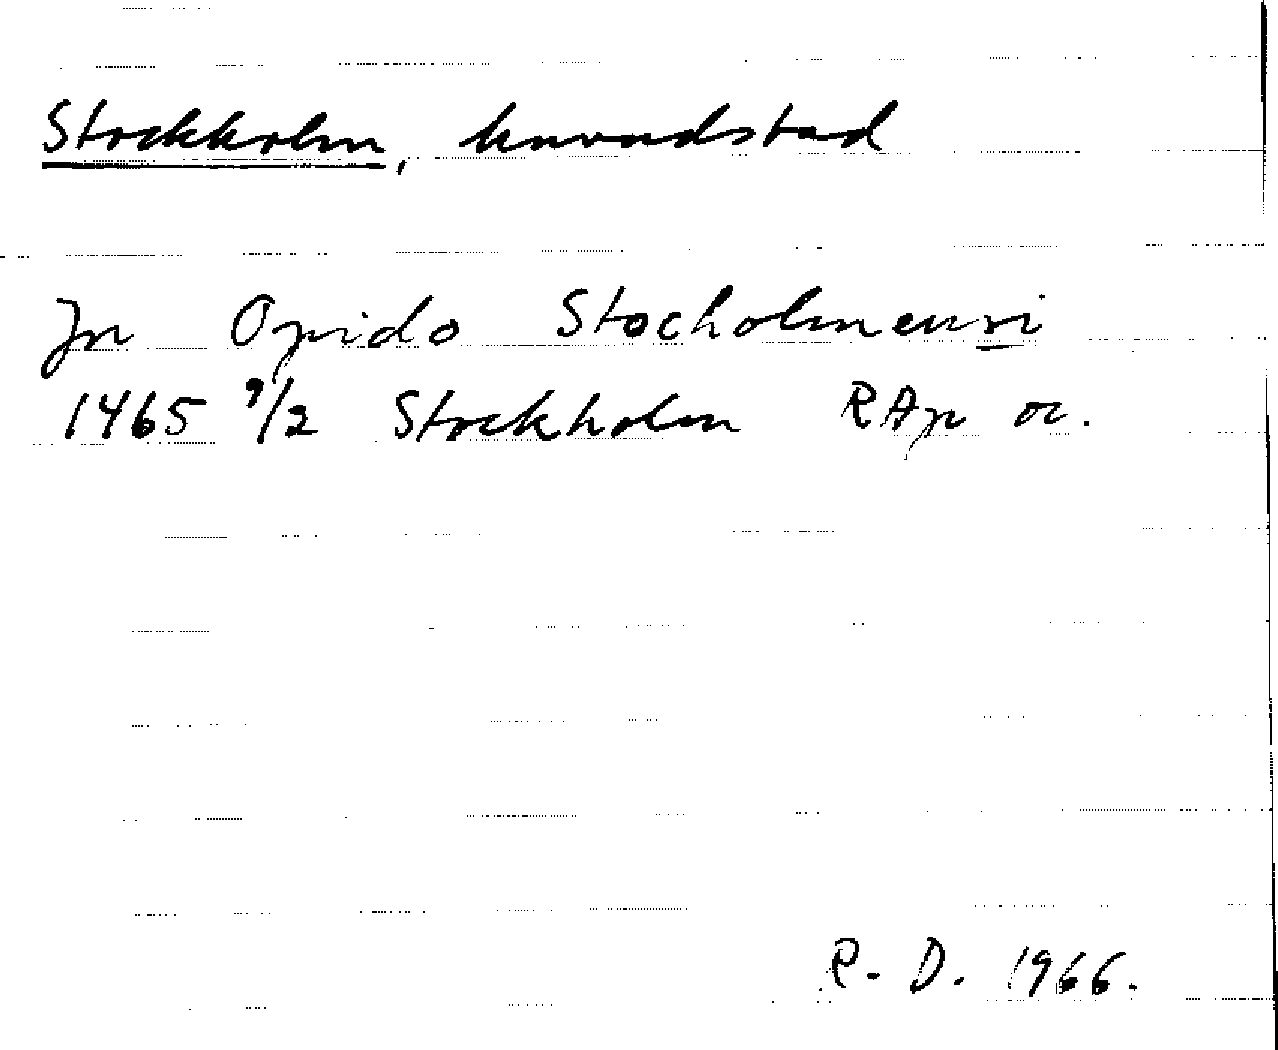 Stockholm, huvudstad
Jn Opido Stocholmensi
1465 9/2 Stockholm RAp or.
R-D. 1966.